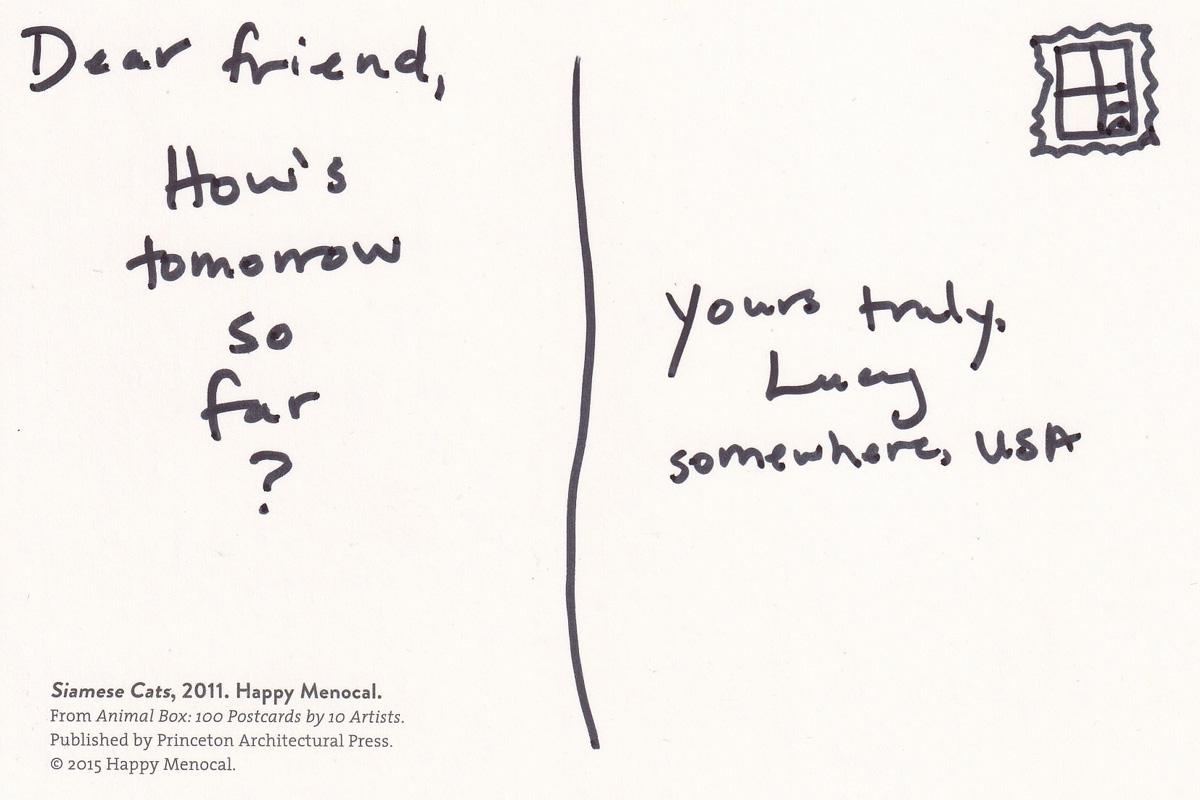 Dear friend,
How's
tomorrow
so
far
?
yours truly,
Lucy
somewhere, USA
Siamese Cats, 2011. Happy Menocal.
From Animal Box: 100 Postcards by 10 Artists.
Published by Princeton Architectural Press.
© 2015 Happy Menocal.